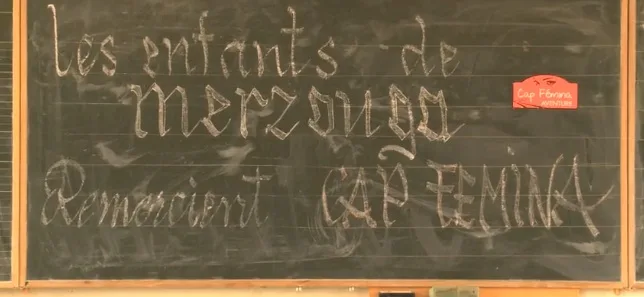 les enfants de
merzouga
Remercient CAP FEMINA
Cap Fémina
AVENTURE